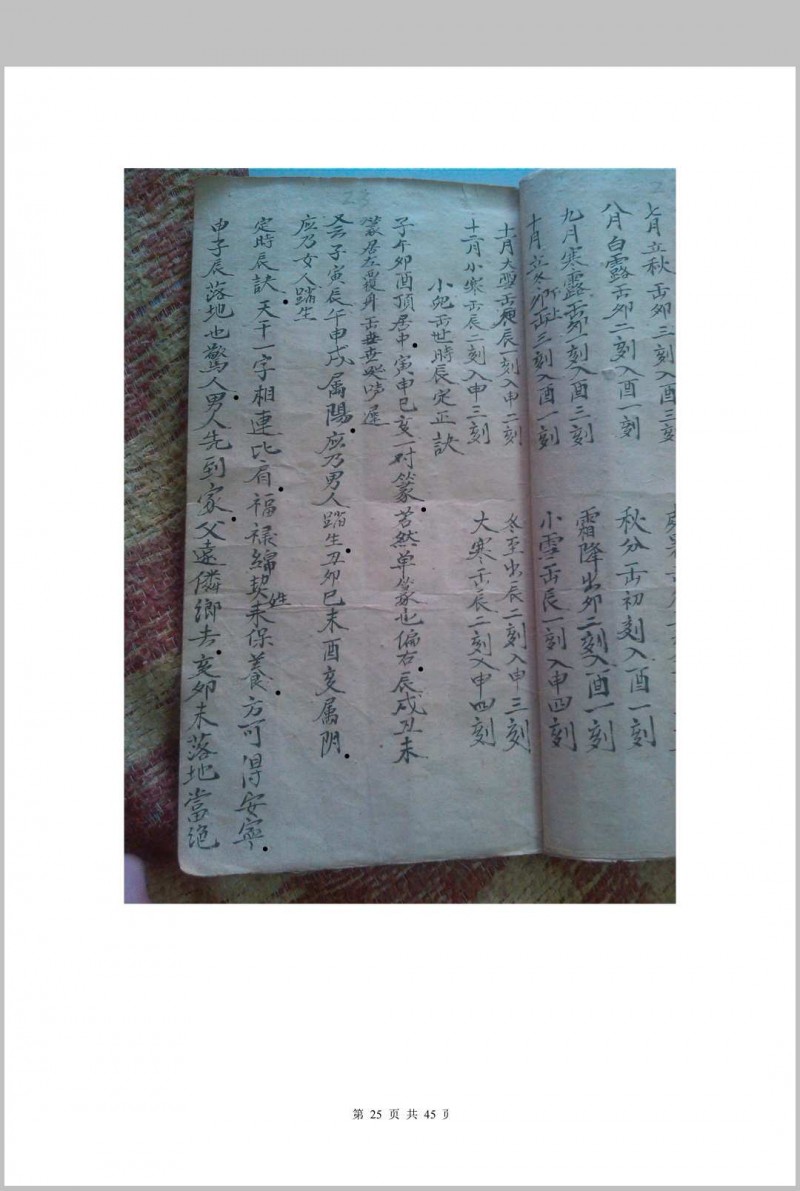 七月立秋出卯三刻入酉三刻
八月白露出卯二刻入酉一刻
秋分出初刻入酉一刻
九月寒露出卯一刻入酉三刻
霜降出卯二刻入酉一刻
十月立冬卯正三刻入酉一刻
小雪出辰一刻入申四刻
十一月大雪出辰一刻入申二刻
冬至出辰二刻入申三刻
十二月小寒出辰二刻入申三刻
大寒出辰二刻入申四刻
小兒出世時辰定正訣
子午卯酉頂居中寅申巳亥一对篆若然单篆也偏右辰戌丑未
篆居左覆身出世
又云子寅辰午申戌属陽应乃男人踏生丑卯巳未酉亥属阴
应乃女人踏生
定時辰訣天干一字相連比肩福禄綿契姓来保養方可得安寧
申子辰落地也驚人男人先到家父遠隣鄉去亥卯未落地當绝
23
第 25 页 共 45 页